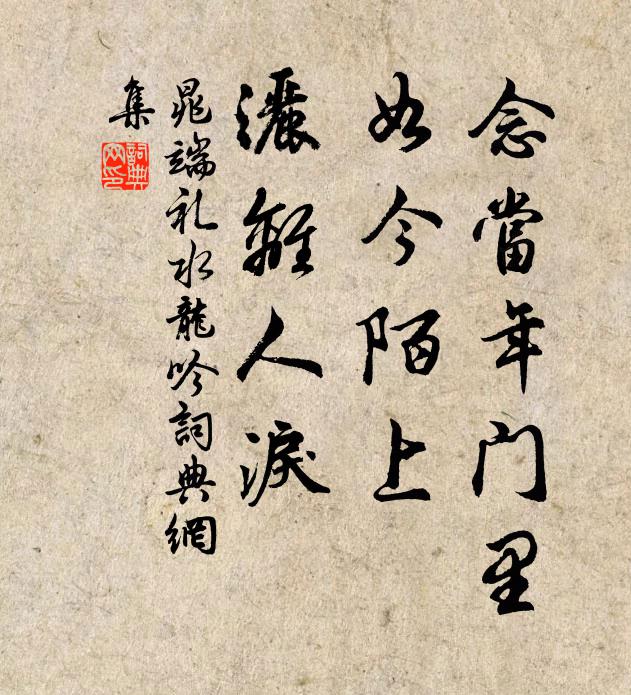 念當年門里
如今陌上
灑離人淚
晁端礼水龍吟詞典網
集
詞典
网印